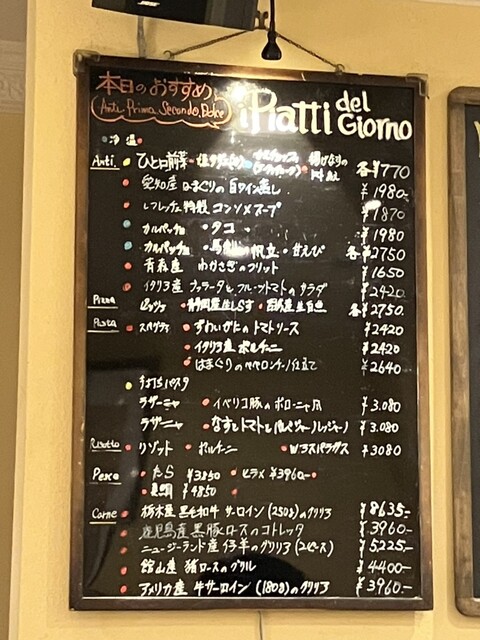 本日のおすすめ
Anti. Prima. Secondo. Dolce
i Piatti del Giorno
冷 温
Anti. ひと口前菜 各¥770
愛知産 はまぐりの白ワイン蒸し ¥1980-
特製 コンソメスープ ¥1870
カルパッチョ ・タコ ¥1980
カルパッチョ ・帆立・甘えび 各¥2750
青森産 わかさぎのフリット ¥1650
イタリア産 ブッラータとフルーツトマトのサラダ ¥2420
Pizza ピッツァ ・静岡産生しらす 各¥2750.
Pasta スパゲティ ・ずわいがにのトマトソース ¥2420
・イタリア産 ポルチーニ ¥2420
・はまぐりのペペロンチーノ仕立て ¥2640
手打ちパスタ
ラザーニャ ・イベリコ豚のボローニャ風 ¥3.080
ラザーニャ ・なすとトマトとパルミジャーノレッジャーノ ¥3.080
Risotto リゾット ・ポルチーニ ・Wアスパラガス ¥3080
Pesce ・たら ¥3850 ・ヒラメ ¥3960-
・真鯛 ¥4850
Carne 栃木産 黒毛和牛 サーロイン(250g)のグリリア ¥8635-
鹿児島産 黒豚ロースのコトレッタ ¥3960-
ニュージーランド産 仔羊のグリリア(2ピース) ¥5,225-
館山産 猪ロースのグリル ¥4400-
アメリカ産 牛サーロイン(180g)のグリリア ¥3960-